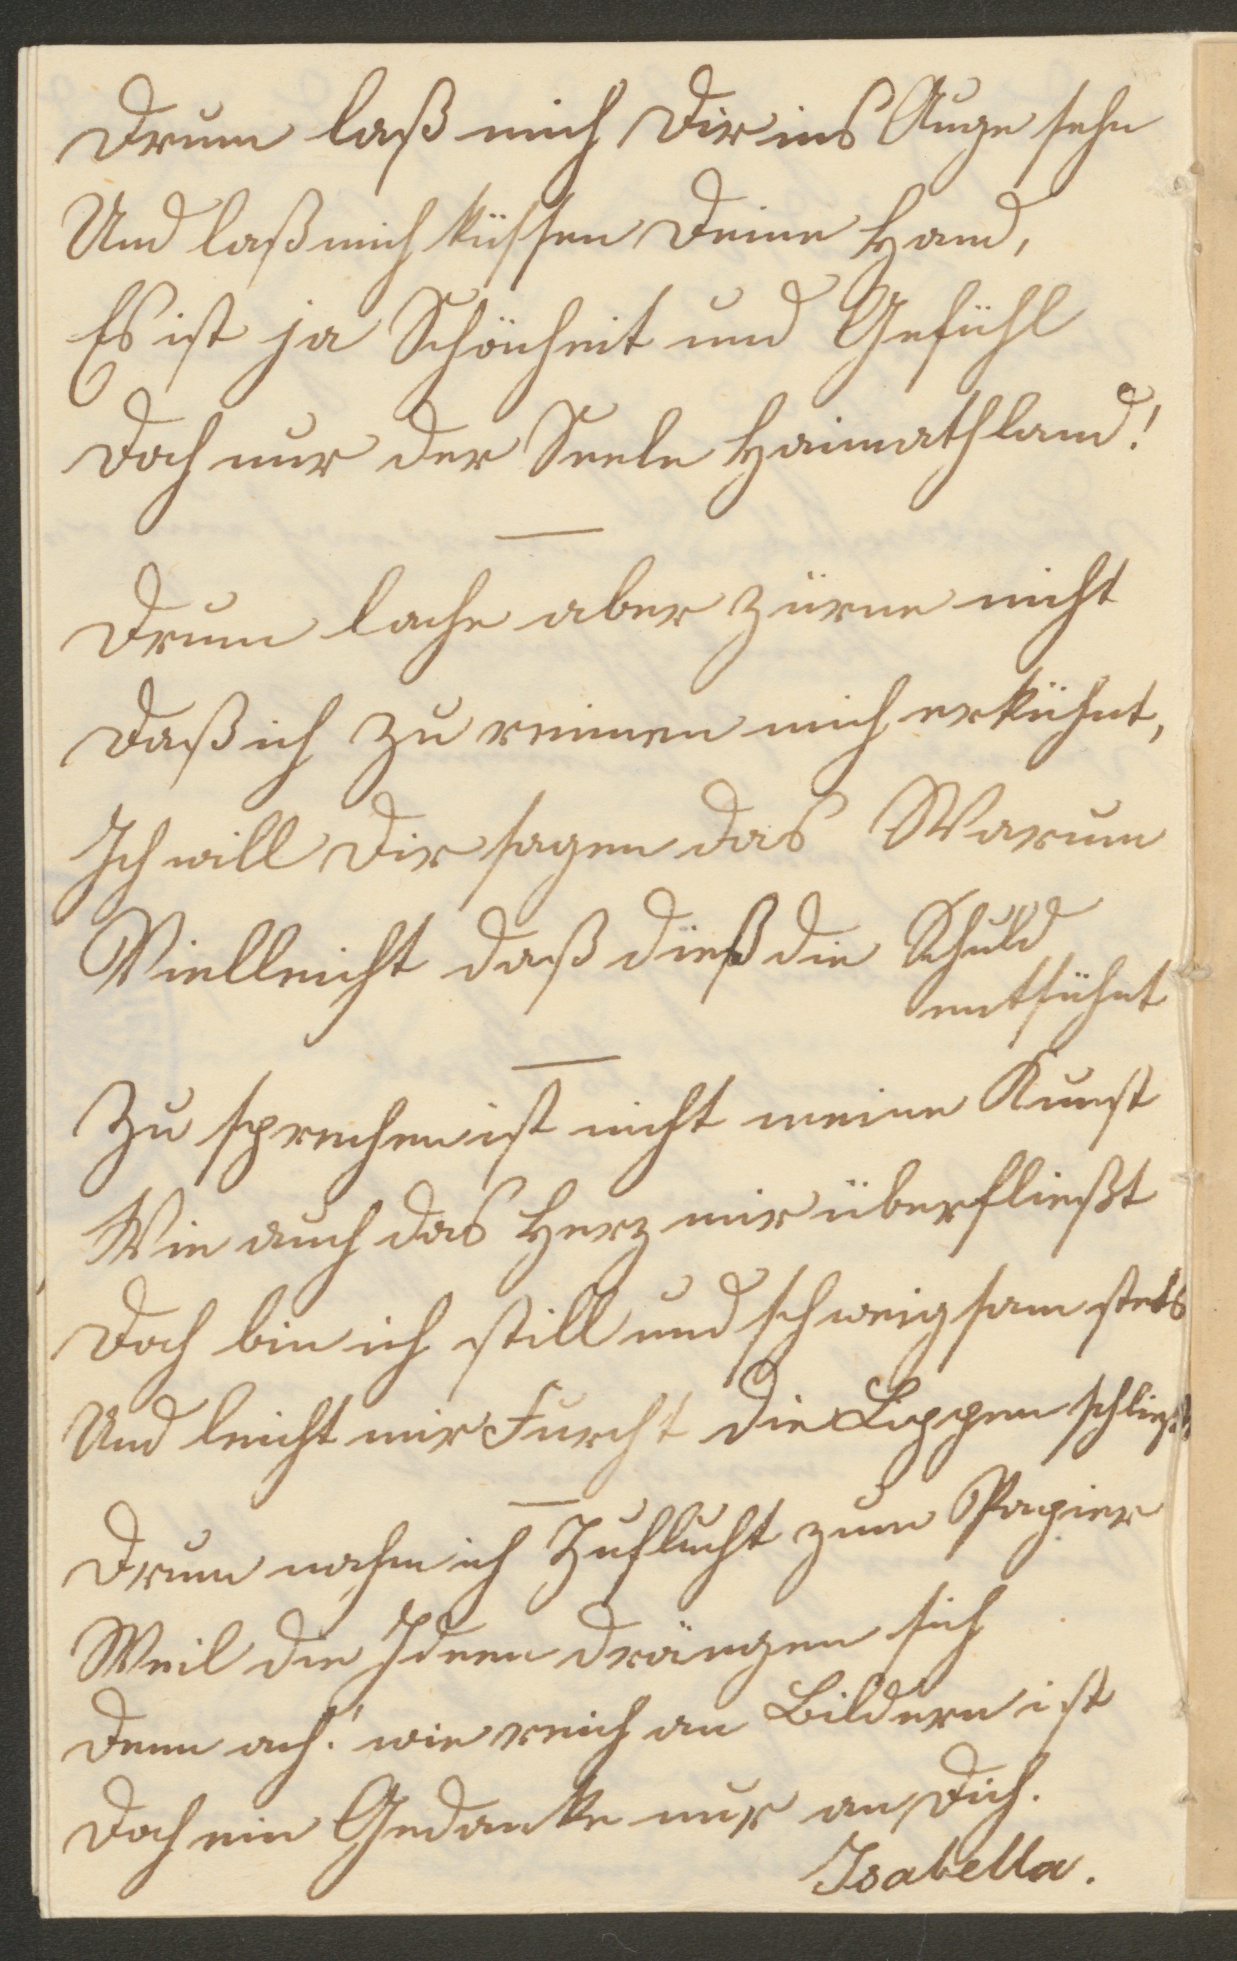 Drum laß mich Dir ins Auge sehn
Und laß mich küssen Deine Hand,
Es ist ja Schönheit und Gefühl
Doch nur der Seele Heimathland!
Drum lache aber zürne nicht
Daß ich zu reimen mich erkühnt,
Ich will Dir sagen das Warum
Vielleicht daß dieß die Schuld
entsühnt
Zu sprechen ist nicht meine Kunst
Wie auch das Herz mir überfließt
Doch bin ich still und schweigsam stets
Und leicht mir Furcht die Lippen schließt,
Drum nahm ich Zuflucht zum Papier
Weil die Ideen drängen sich
Denn ach! wie reich an Bildern ist
Doch ein Gedanke nur an Dich.
Isabella.